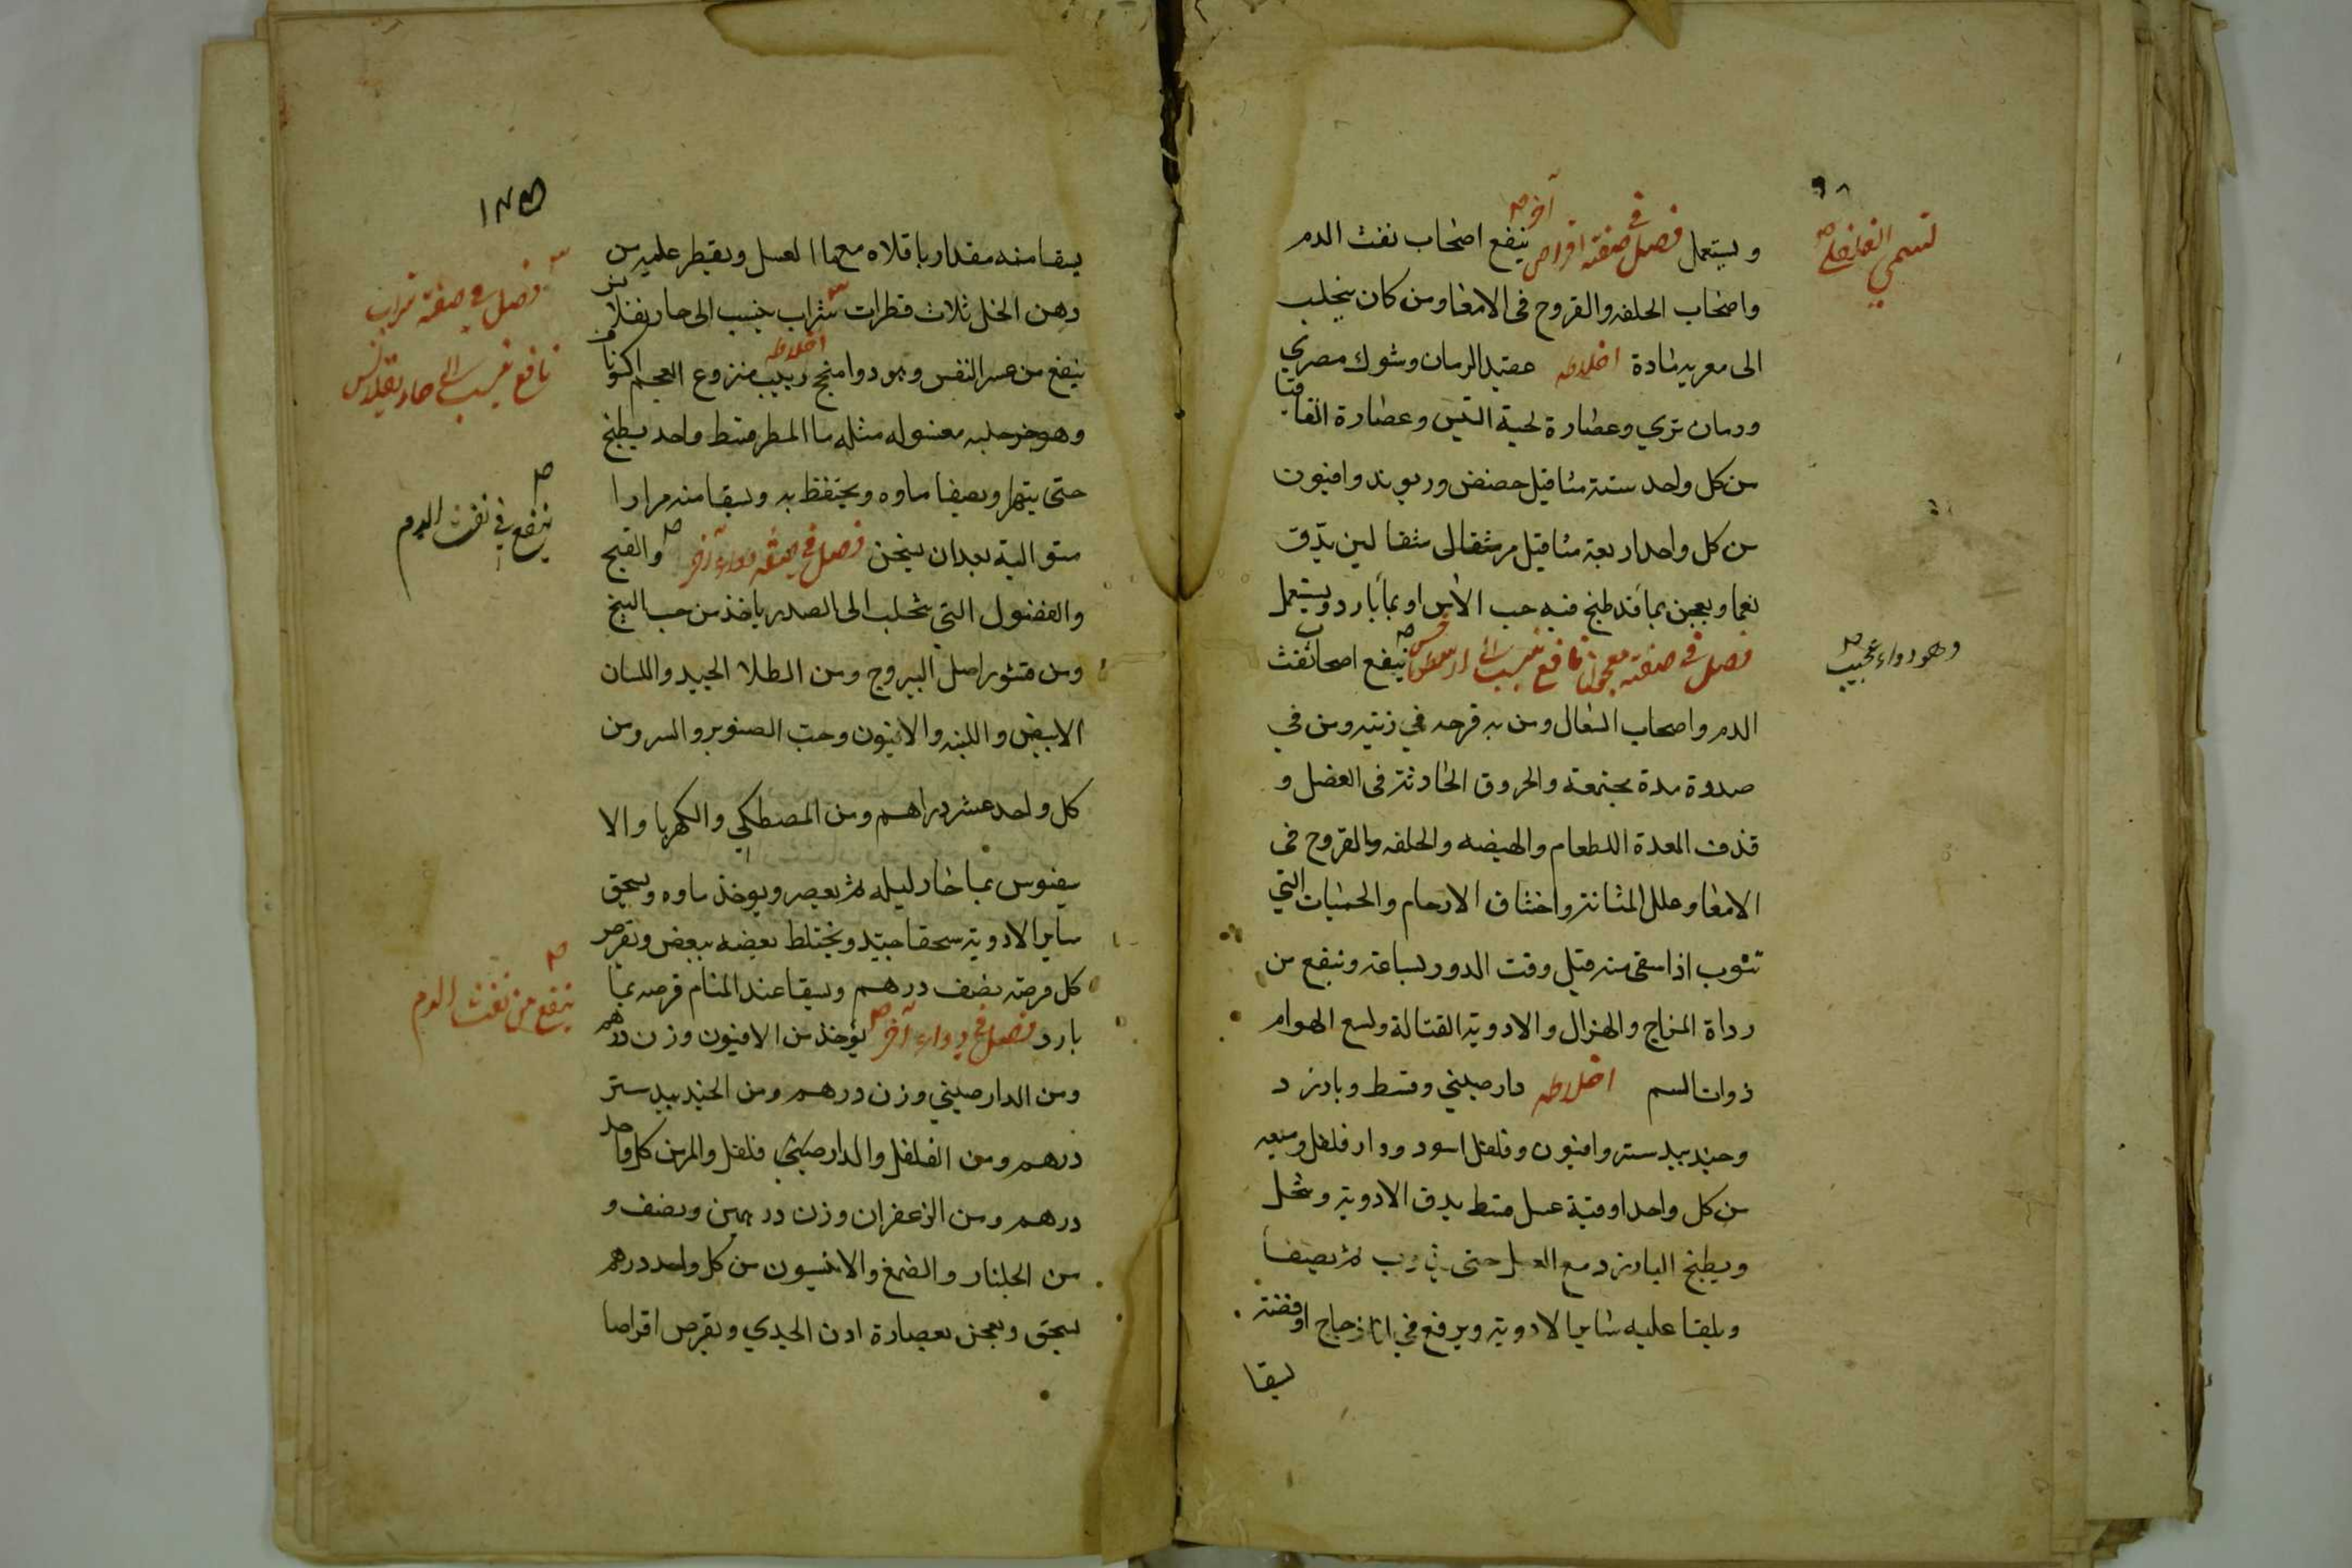 ويستعمل فصل في صفة اقراص آخر ينفع اضحاب نفث الدم
واضحاب الحلفه والقروح فى الامعا ومن كان يتجلب
الى معريه مادة اخلاطه عقيد الرمان وشوك مصري
ورمان بري وعصارة لحية التيس وعصارة القاقيا
من كل واحد ستة مثاقيل حضض وريوند وافيون
من كل واحد اربعة مثاقيل مر مثقالى مثقالين يدق
نعما ويعجن بما قد طبخ فيه حب الاس او بما بارد ويستعمل
فصل في صفة معجون نافع ينسب الى ينفع اصحاب نفث
الدم واصحاب السعال ومن به قرحه في ريته ومن في
صدره مدة مجتمعة والخروق الحادثة فى العضل و
قذف المعدة للطعام والهيضه والحلفه والقروح فى
الامعا وعلل المثانة واختناق الارحام والحميات التي
تنوب اذا سقى منه قبل وقت الدور بساعة وينفع من
رداة المزاج والهزال والادوية القتالة ولسع الهوام
ذوات السم اخلاطه دارصيني وقسط وبارزد
وجندبيدستر وافيون وفلفل اسود ودار فلفل وميعه
من كل واحد اوقية عسل قسط يدق الادوية وينخل
ويطبخ البارزد مع العسل حتى يذوب ثم يصفا
ويلقا عليه ساير الادوية ويرفع في انا زجاج او فضة
يسقا
٩٨
تسمي
وهو دواء عجيب
١٣٥
يسقا منه مقدار باقلاه مع ما العسل ويقطر عليه من
دهن الخل ثلاث قطرات شراب ينسب الى حاريقلانس
ينفع من عسر النفس اخلاطه زبيب منزوع العجم
وهو جزء حلبه مغسوله مثله ما المطر قسط واحد يطبخ
حتى يتهرا ويصفا ماوه ويحتفظ به ويسقا منه مرارا
متوالية بعد ان يسخن فصل في صفة دواء آخر والقيح
والفضول التي تتحلب الى الصدر ياخذ من حب البنج
ومن قشور اصل اليبروج ومن الطلا الجيد واللبان
الابيض واللبنه والافيون وحب الصنوبر والمر ومن
كل واحد عشر دراهم ومن المصطكي والكهربا والا
يقيوس بما حار ليله ثم يعصر ويوخذ ماوه ويسحق
ساير الادوية سحقا جيد ويختلط بعضه ببعض ويقرص
كل قرصة نصف درهم ويسقا عند المنام قرصه بما
بارد فصل في دواء آخر يؤخذ من الافيون وزن درهم
ومن الدارصيني وزن درهم ومن الجندبيدستر
درهم ومن الفلفل والدارصيني فلفل والمر من كل واحد
درهم ومن الزعفران وزن درهمين ونصف و
من الجلنار والصمغ والانيسون من كل واحد درهم
يسحق ويعجن بعصارة اذن الجدي ويقرص اقراصا
فصل في صفة شراب
نافع ينسب الى حاريقلانس
ينفع في نفث الدم
ينفع من نفث الدم